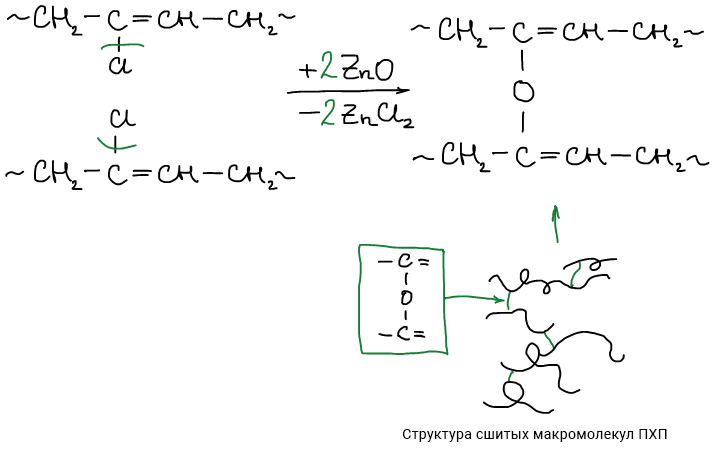 ~CH₂–C=CH–CH₂~
Cl
Cl
~CH₂–C=CH–CH₂~
+2ZnO
–2ZnCl₂
~CH₂–C=CH–CH₂~
O
~CH₂–C=CH–CH₂~
–C=
O
–C=
Структура сшитых макромолекул ПХП